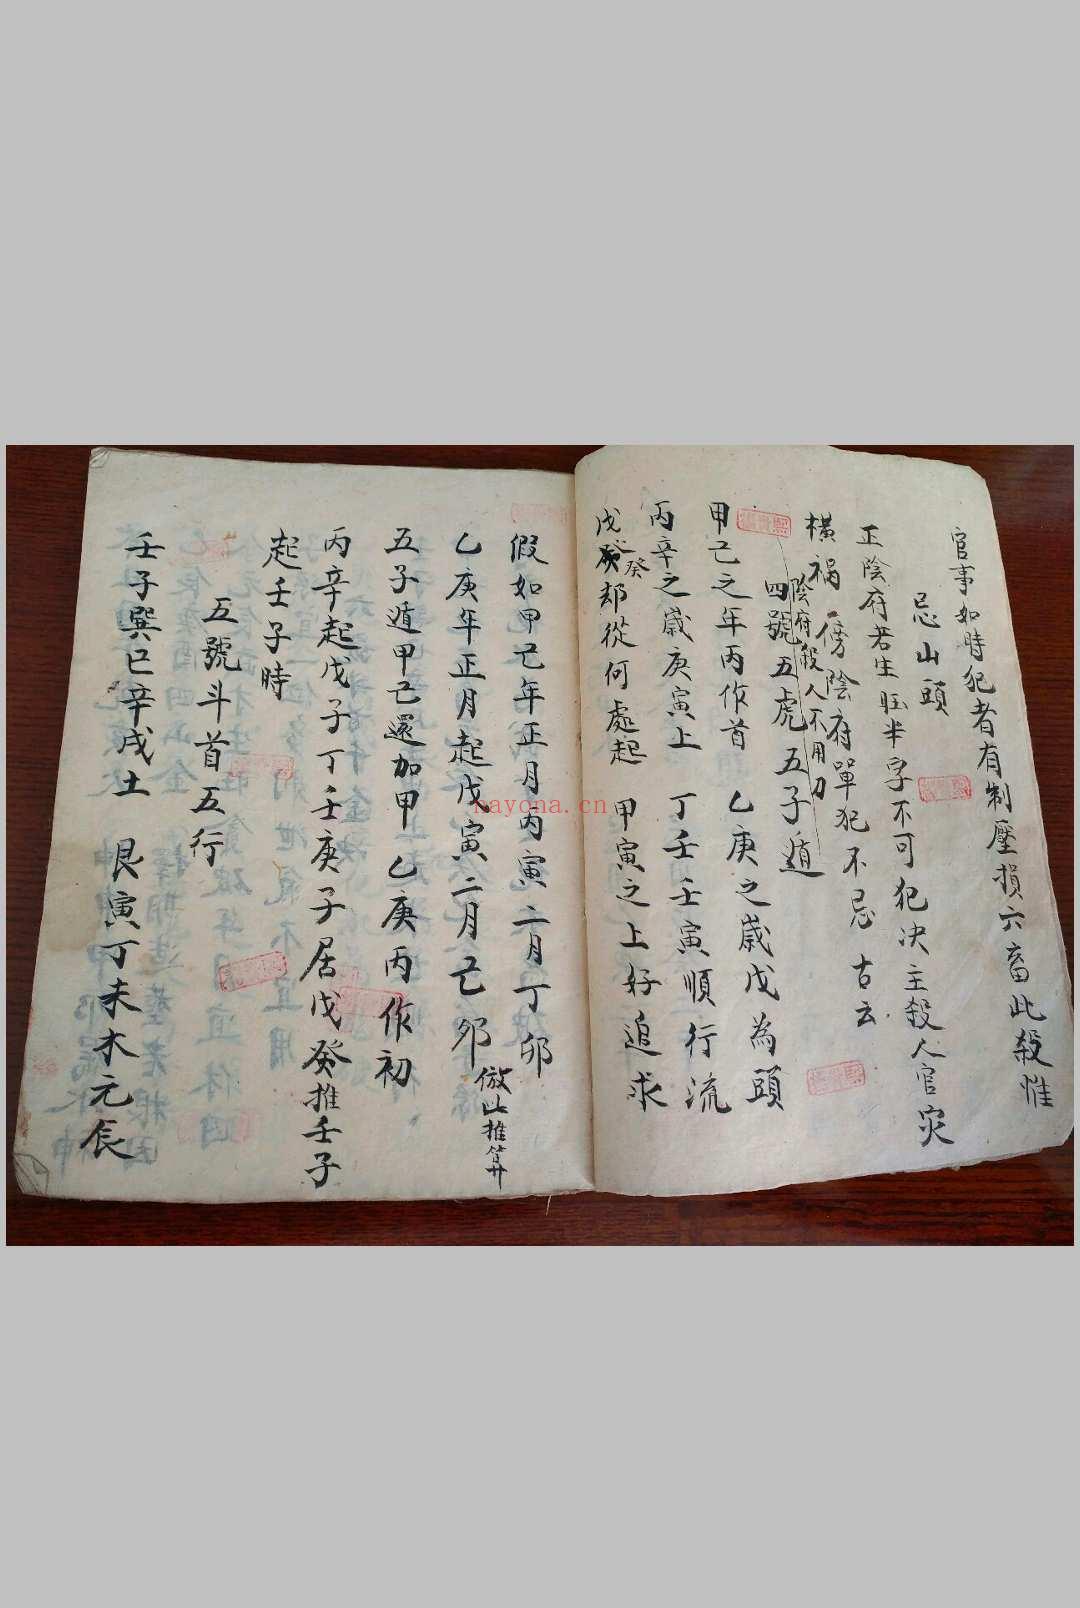 官事如時犯者有制壓損六畜此殺惟
忌山頭
正陰府若生旺半字不可犯决主殺人官灾
橫禍 傍陰府單犯不忌 古云
陰府殺人不用刀
四號五虎五子遁
甲己之年丙作首 乙庚之歲戊為頭
丙辛之歲庚寅上 丁壬壬寅順行流
戊癸却從何處起 甲寅之上好追求
假如甲己年正月丙寅二月丁卯
乙庚年正月起戊寅二月己卯
倣此推算
五子遁甲己還加甲 乙庚丙作初
丙辛起戊子丁壬庚子居戊癸推壬子
起壬子時
五號斗首五行
壬子巽巳辛戌土 艮寅丁未木元辰
nayona.cn